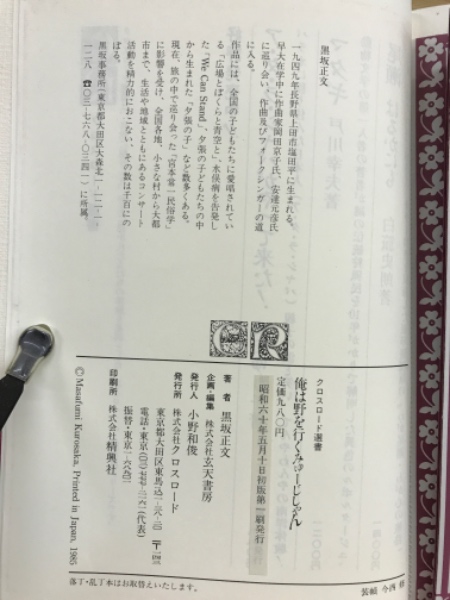 黒坂正文
一九四九年長野県上田市塩田平に生まれる。
早大在学中に作曲家岡田京子氏、安達元彦氏
に巡り会い、作曲及びフォークシンガーの道
に入る。
作品には、全国の子どもたちに愛唱されてい
る「広場とぼくらと青空と」、水俣病を告発し
た「We Can Stand」、夕張の子どもたちの中
から生まれた「夕張の子」など数多くある。
現在、旅の中で巡り合った「宮本常一民俗学」
に影響を受け、全国各地、小さな村から大都
市まで、生活や地域とともにあるコンサート
活動を精力的におこない、その数は千百にの
ぼる。
黒坂事務所（東京都大田区大森北一‐二二‐
一二八 ☎〇三‐七六八‐〇三四一）に所属。
CR
クロスロード選書
俺は野を行くみゅーじしゃん
定価九八〇円
昭和六十年五月十日初版第一刷発行
著 者 黒坂正文
企画・編集 株式会社玄天書房
発行人 小野和俊
発行所 株式会社クロスロード
東京都大田区東馬込
電話・東京(〇三)（代表）
振替・東京
印刷所 株式会社精興社
©Masafumi Kurosaka, Printed in Japan, 1985
落丁・乱丁本はお取替えいたします。
装幀 今西